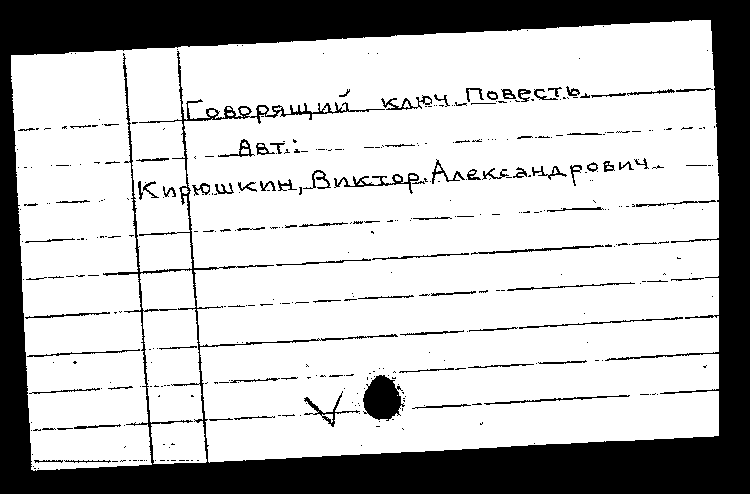 Говорящий ключ. Повесть.
Авт.:
Кирюшкин, Виктор Александрович.